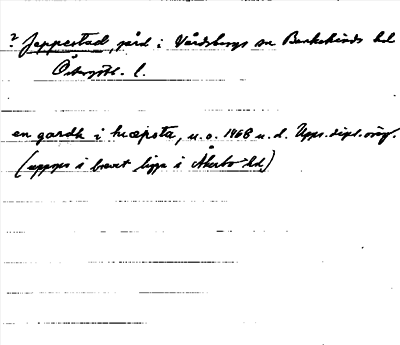 ? Jeppestad, gård i Vårdsbergs sn Bankekinds hd
Östergötl. l.
en gardh i hræpsta, u.o. 1468 u.d. Upps. dipl. orig.
(uppges i brevet ligga i Åkerbo hd)